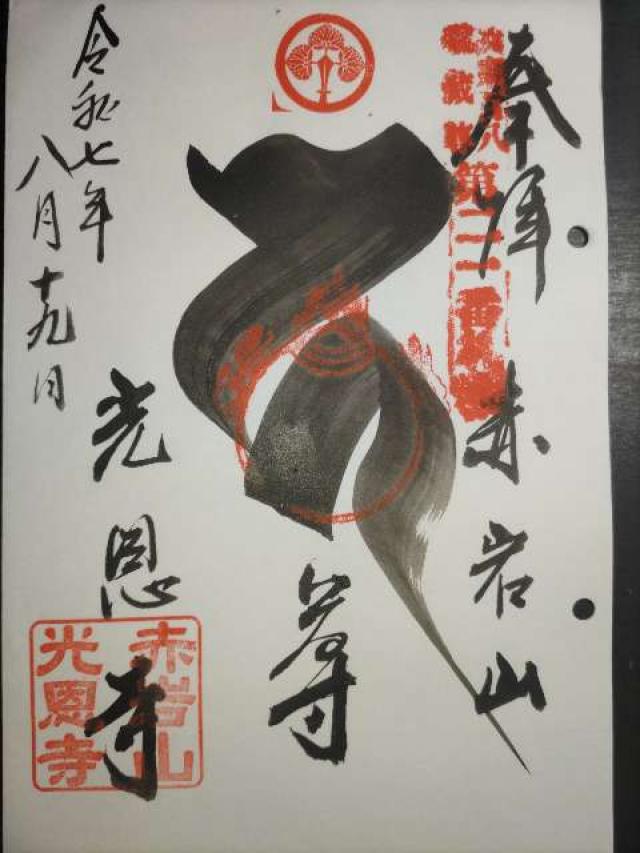 奉拝 赤岩山
尊
光恩寺
令和七年
八月十九日
赤岩山
光恩寺